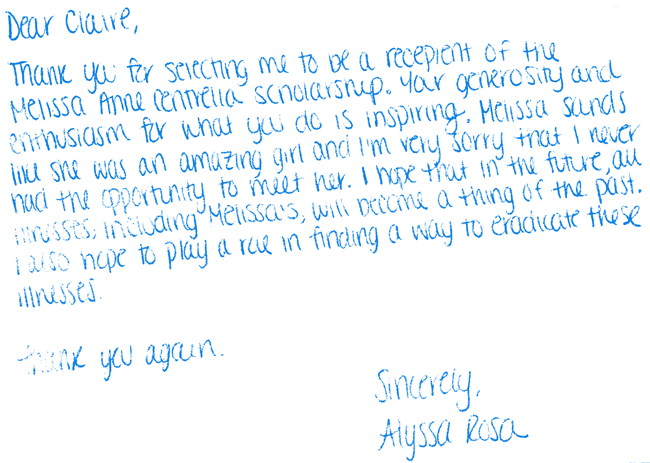 Dear Claire,
Thank you for selecting me to be a recepient of the
Melissa Anne Centrella scholarship. Your generosity and
enthusiasm for what you do is inspiring. Melissa sounds
like she was an amazing girl and I'm very sorry that I never
had the opportunity to meet her. I hope that in the future, all
illnesses, including Melissa's, will become a thing of the past.
I also hope to play a role in finding a way to eradicate these
illnesses.
Thank you again.
Sincerely,
Alyssa Rosa